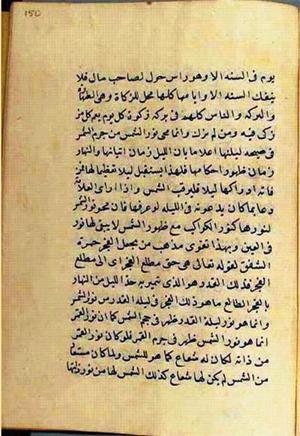 150
يوم فى السنه الا وهو راس حول لصاحب مال فلا
ينفك السنه الا وايامها كلها محل للزكاة وهى الطهارة
والبركه والناس كلهم فى بركه زكوة كل يوم يعم كل من
زكى فيه ومن لم يزك وانما محى نور الشمس من جرم الشمس
فى صبيحه ليلتها اعلاما بان الليل زمان اتيانها والنهار
زمان ظهور احكامها فلهذا تستقبل ليلا تعظيما لها فمن
فاته ادراكها ليلا فليرقب الشمس واذا راى العلامه
دعا بما كان يدعو به فى الليله لو عرفها فان محو نور الشمس
لنورها كنور الكواكب مع ظهور الشمس لا يبقى لها نور
فى العين وبهذا تقوى مذهب من يجعل الفجر حمرة
الشفق لقوله تعالى هى حتى مطلع الفجر اى الى مطلع
الفجر فذلك القدر هو الذى يتميز به حد الليل من النهار
بالفجر الطالع ما هو ذلك الفجر فى ليلة القدر من نور الشمس
وانما هو نور ليلة القدر ظهر فى جرم الشمس كما ان نور القمر
انما هو نور الشمس ظهر فى جرم القمر فلو كان نور القمر
من ذاته لكان له شعاع كما هو للشمس ولما كان مستعارا
من الشمس لم يكن لها شعاع كذلك الشمس لها من نور ذاتها